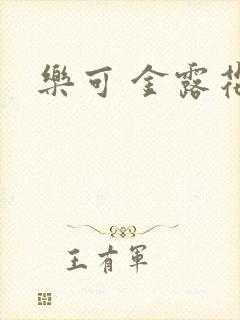 樂可 金露
王有軍